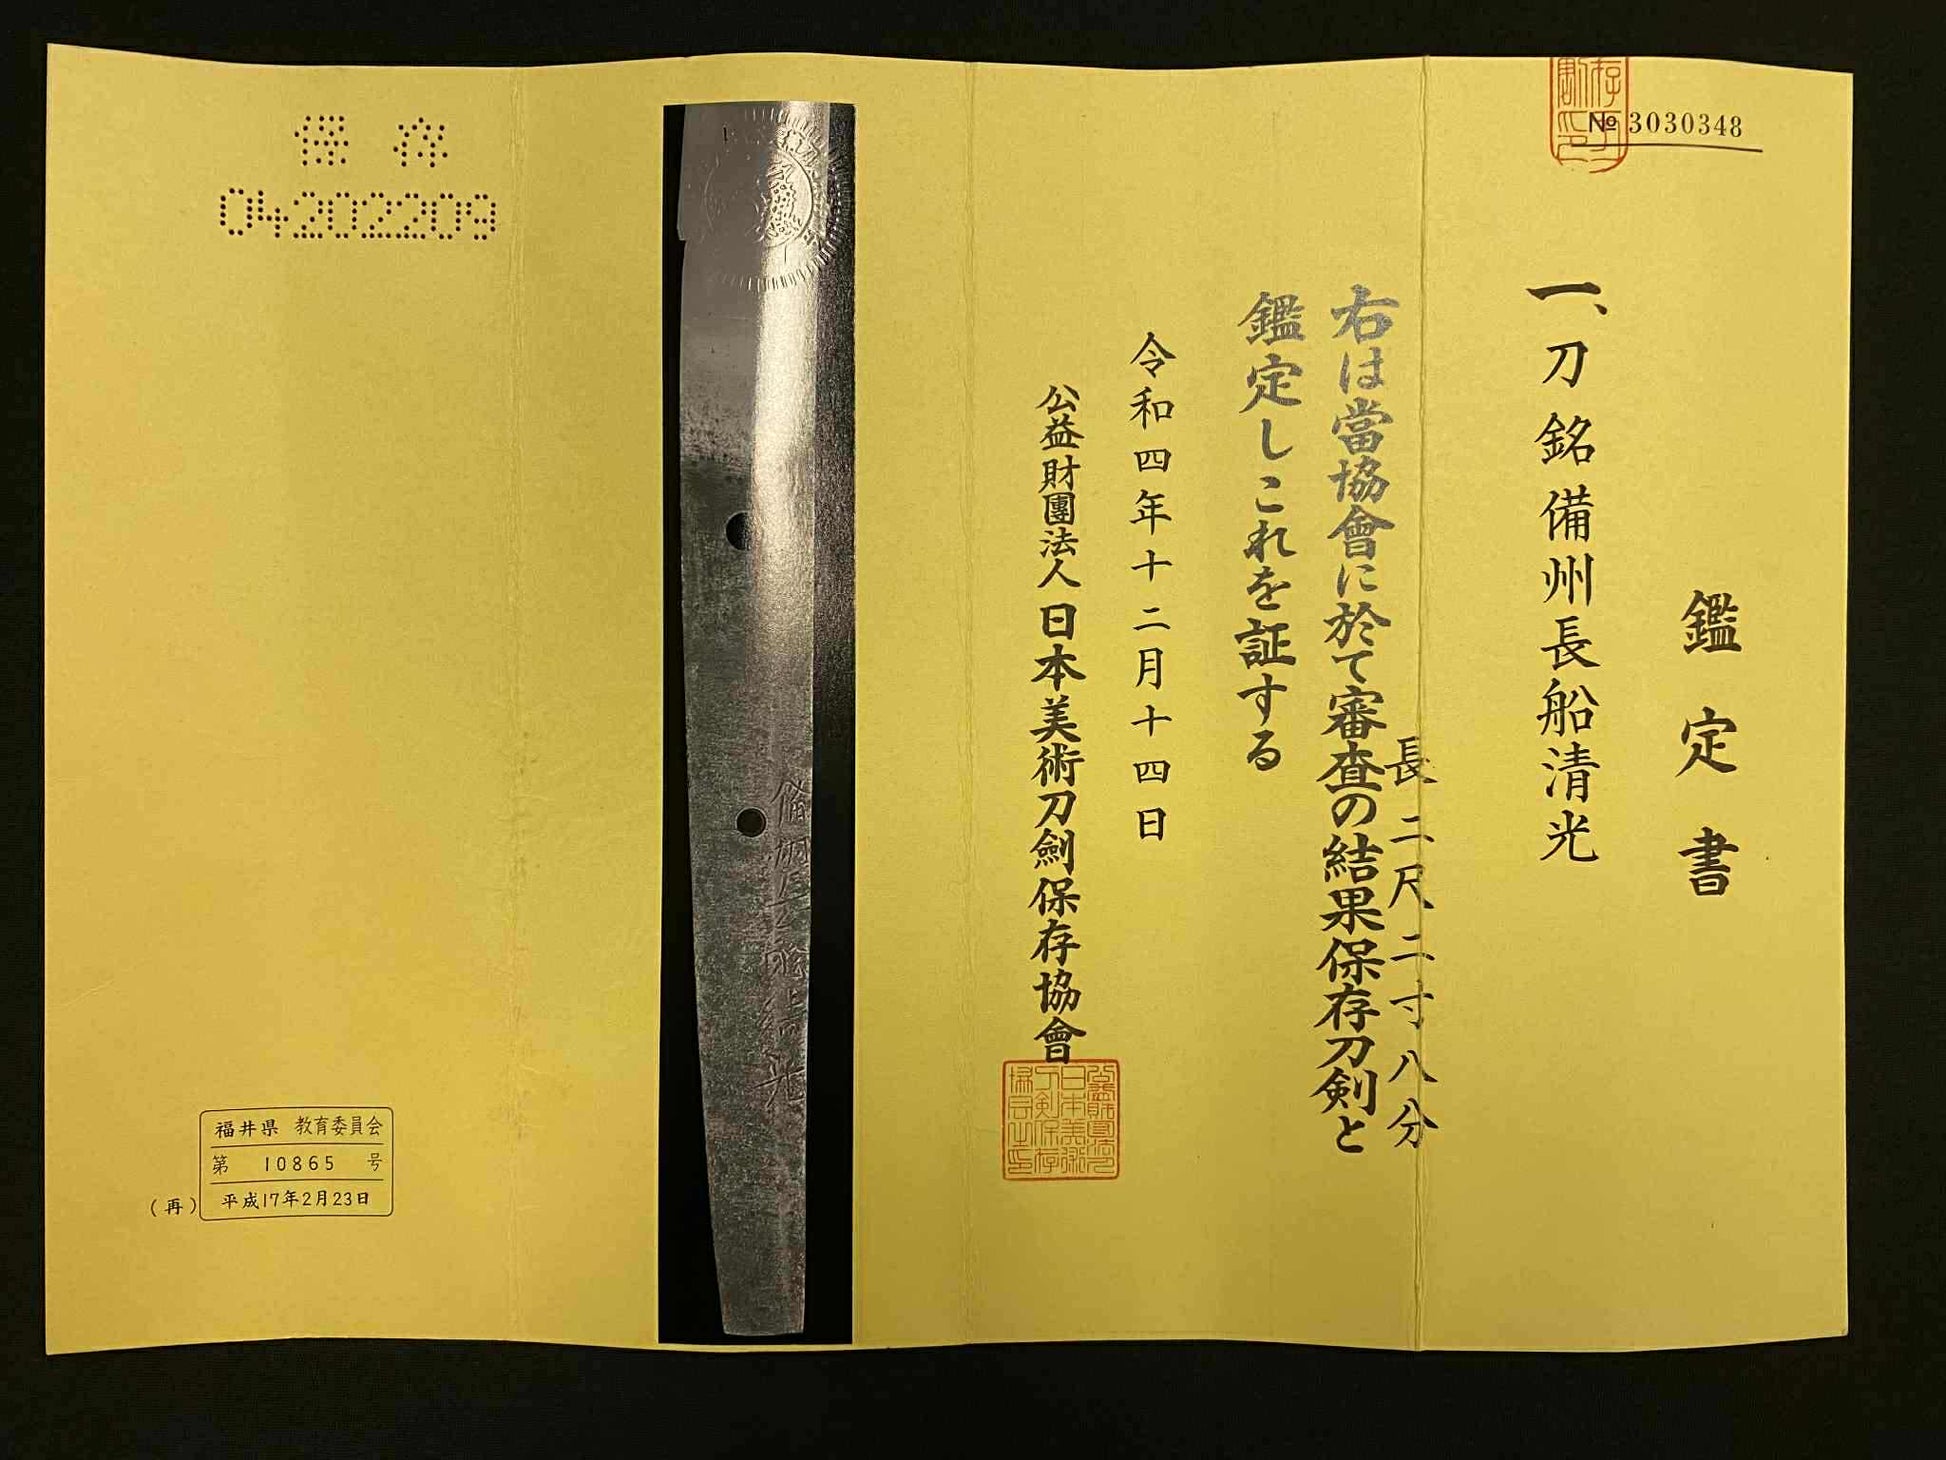 № 3030348
鑑定書
一、刀 銘 備州長船清光
長 二尺二寸八分
右は當協會に於て審査の結果保存刀剣と
鑑定しこれを証する
令和四年十二月十四日
公益財團法人 日本美術刀劍保存協會
備州長船清光
保存
04202209
福井県 教育委員会
第 10865 号
(再) 平成17年2月23日